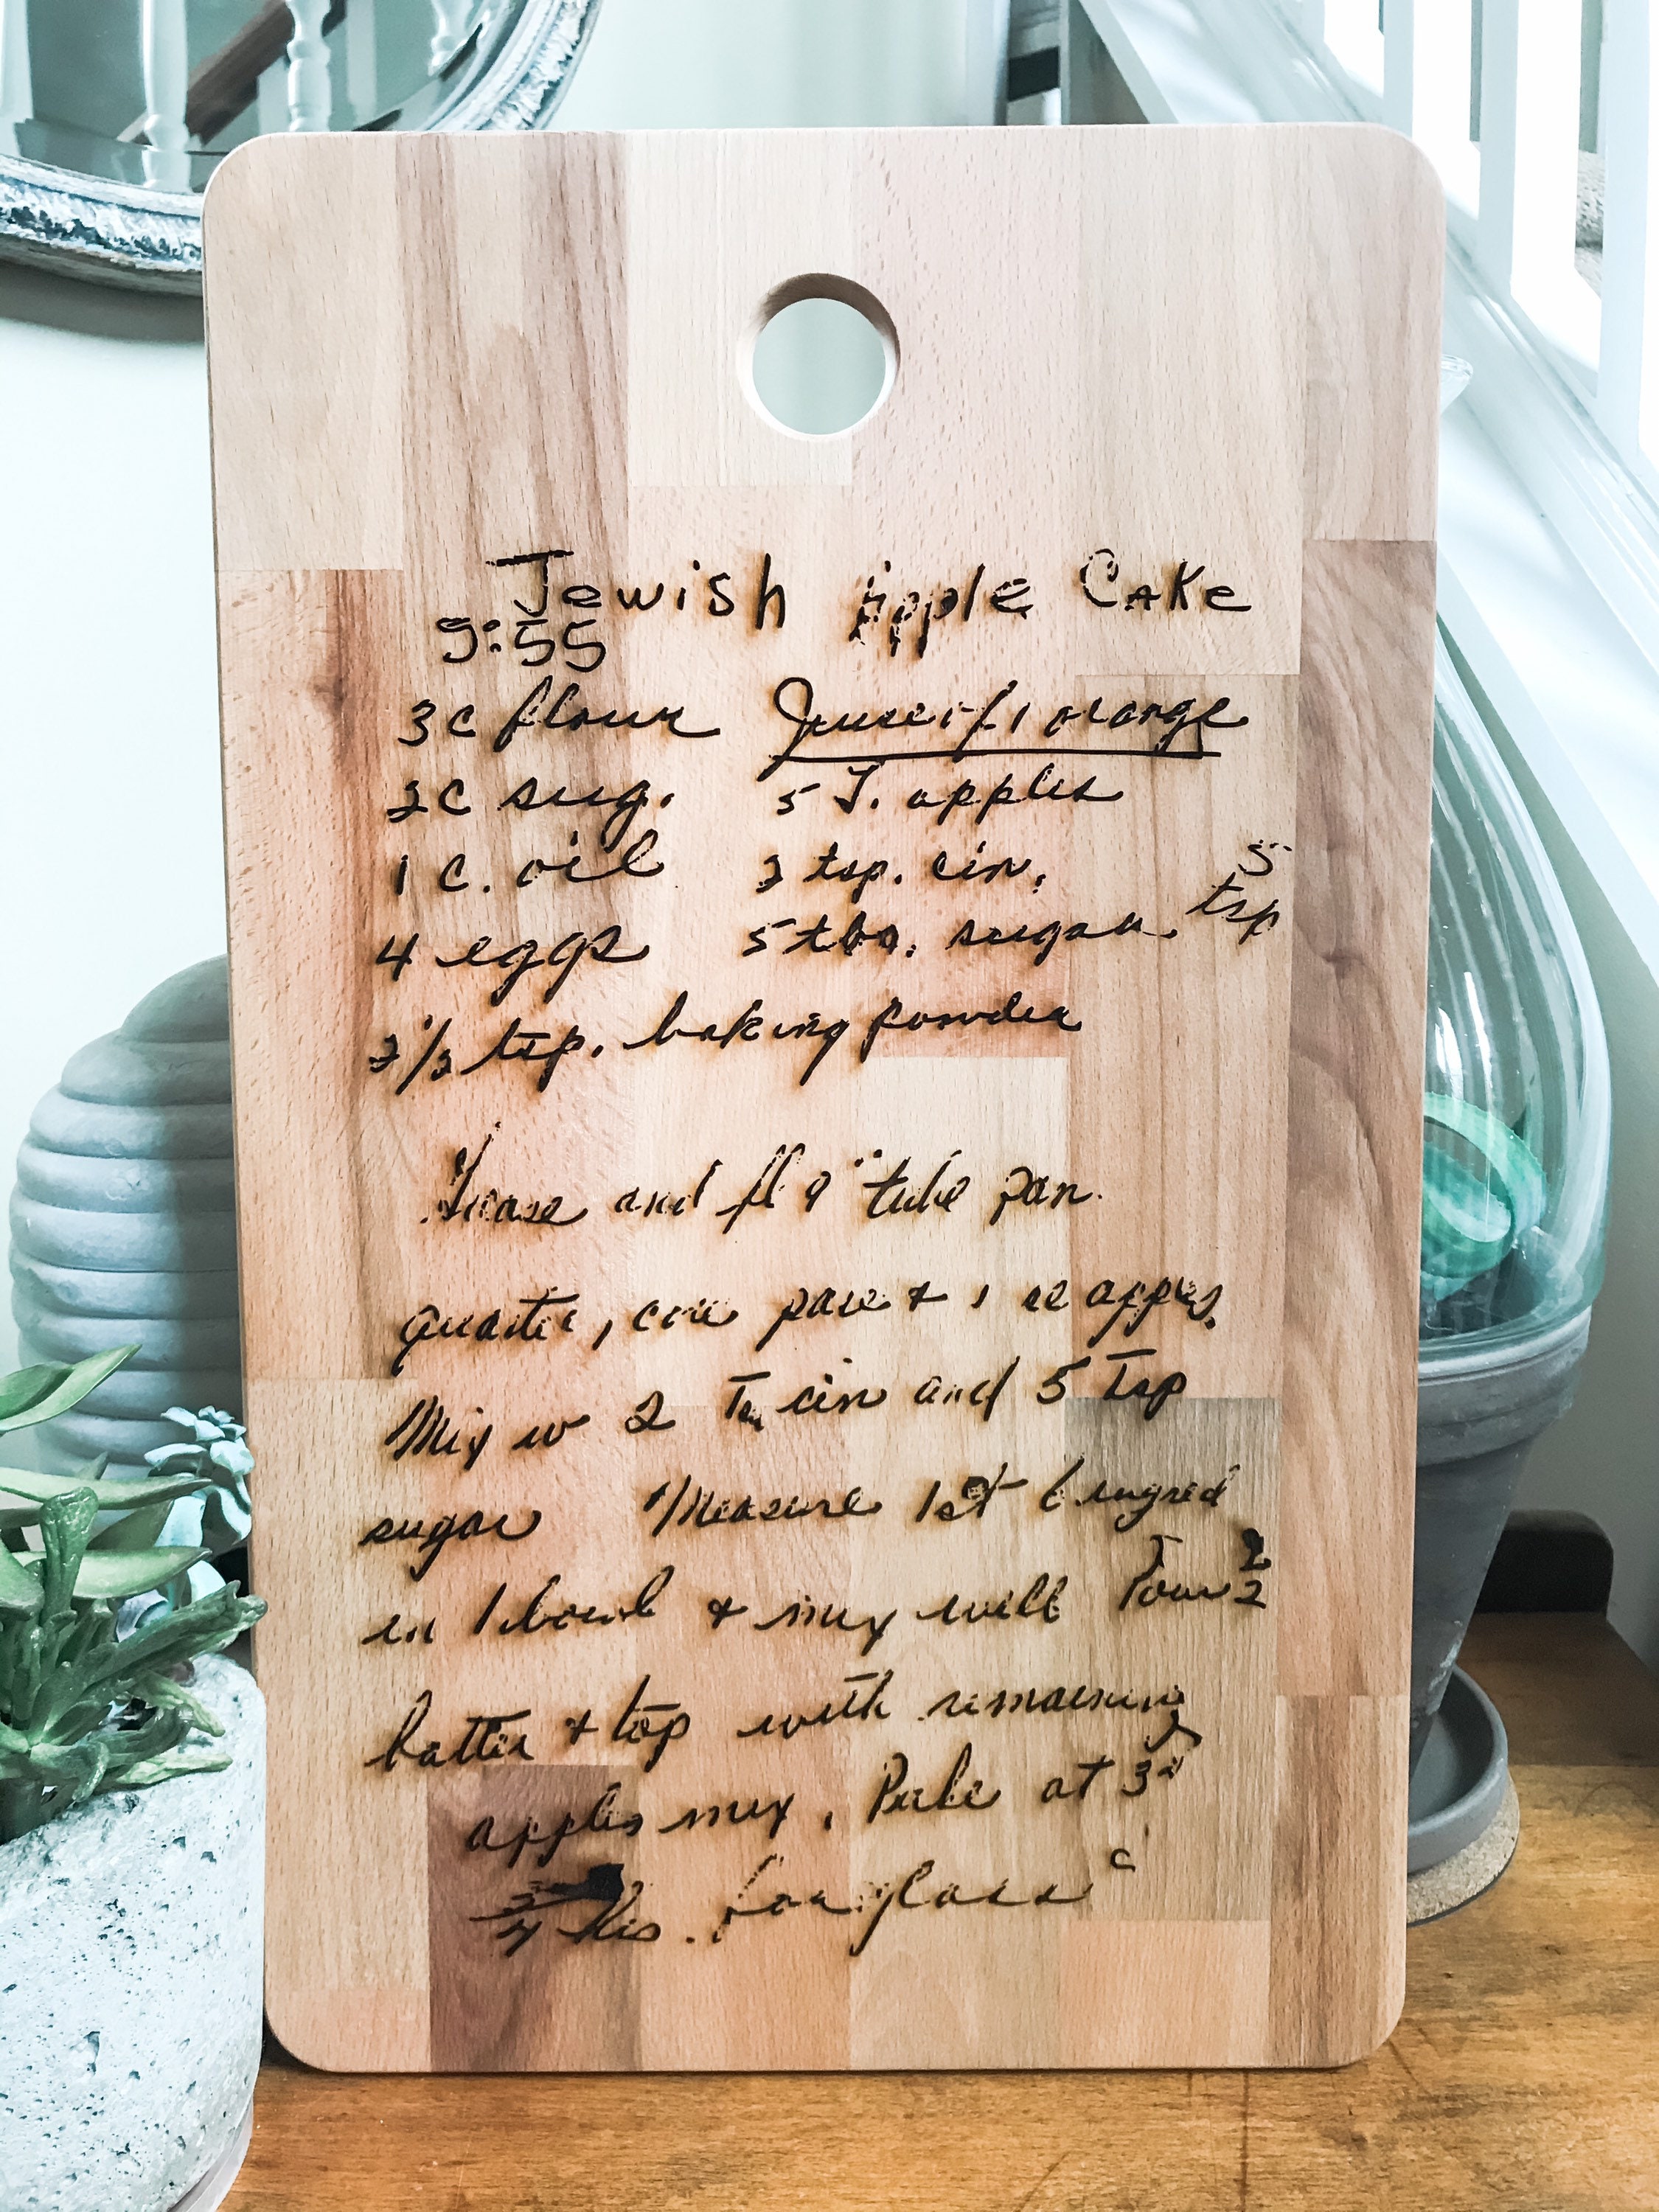 Jewish Apple Cake
9:55
3 c flour Juice of 1 orange
2 c sug. 5 J. apples
1 c. oil 2 tsp. cin. 5
4 eggs 5 tbs. sugar. tsp
2 1/2 tsp. baking powder
Grease and fl 9" tube pan.
quarter, core pare & apples.
Mix w 2 cin and 5 Tsp
sugar Measure 1st 6 ingred
in 1 bowl & mix well Pour
batter & top with remaining
apples mix. Bake at
hrs. for glass